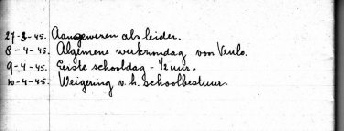 27-3-45. Aangewezen als leider.
8-4-45. Algemene werkzondag voor Venlo.
9-4-45. Eerste schooldag - 1/2 uur.
10-4-45. Weigering v.h. schoolbestuur.